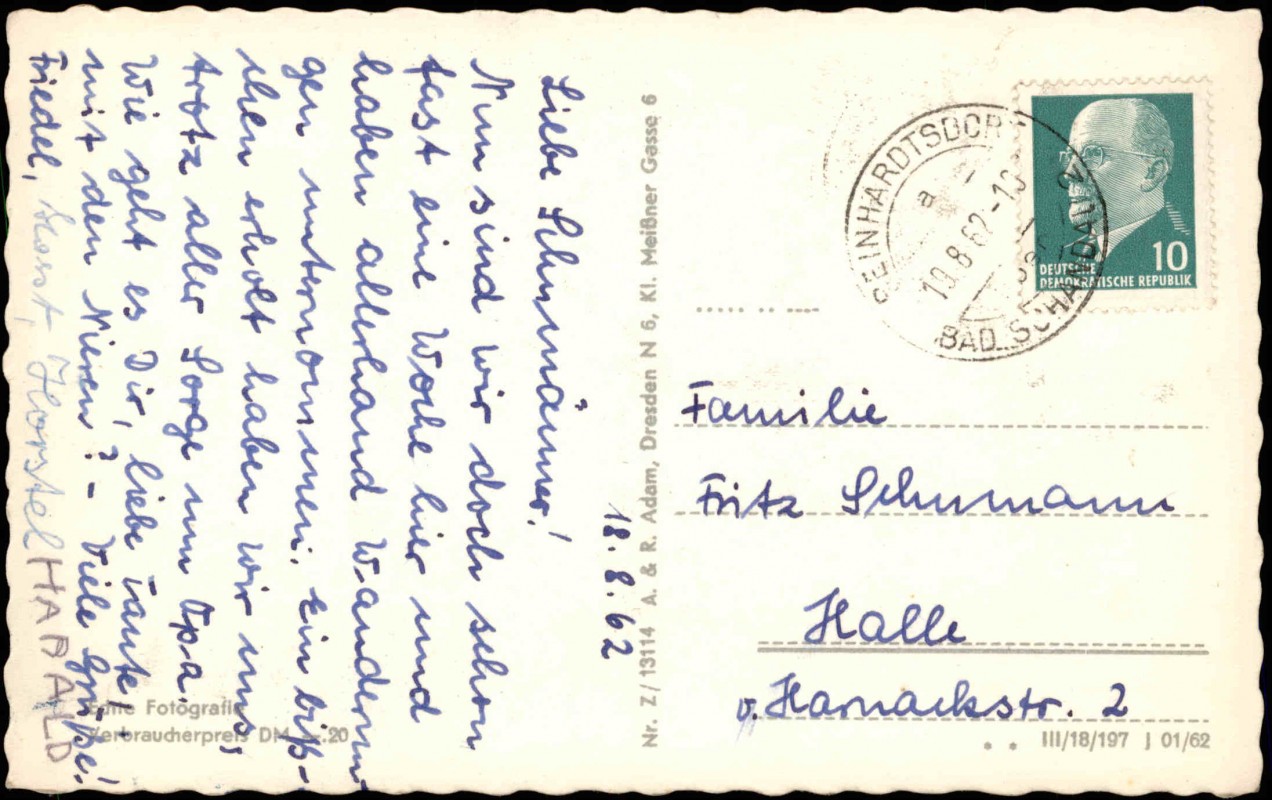 18.8.62
Liebe Schumänner!
Nun sind wir doch schon
fast eine Woche hier und
haben allerhand Wanderun-
gen unternommen. Ein biß-
chen erholt haben wir uns,
trotz aller Sorge um Opa.
Wie geht es Dir, liebe Tante
mit den Nieren? - Viele Grüße!
Friedel, Horstel HARALD
Echte Fotografie
Verbraucherpreis DM -.20
Nr. Z/13114 A. & R. Adam, Dresden N 6, Kl. Meißner Gasse 6
REINHARDTSDORF
a
19.8.62
BAD SCHANDAU 2
10
DEUTSCHE
DEMOKRATISCHE REPUBLIK
Familie
Fritz Schumann
Halle
v. Harnackstr. 2
III/18/197 J 01/62